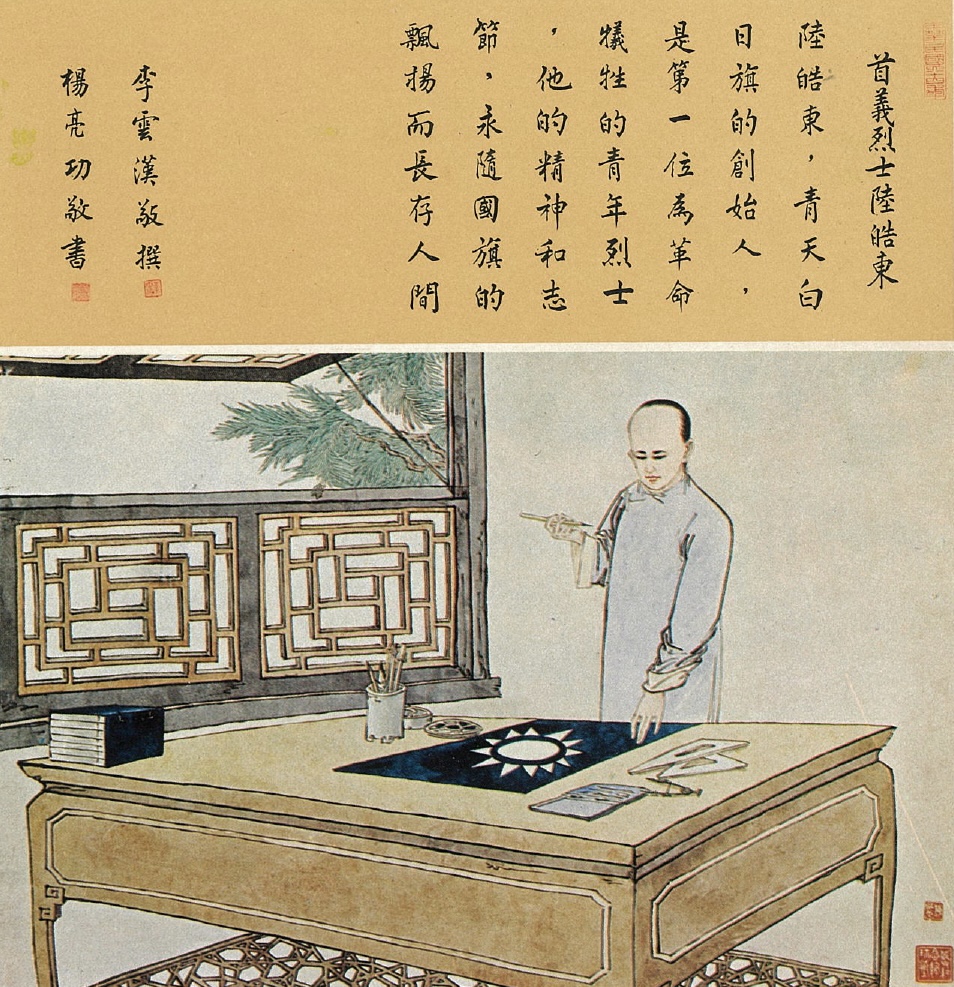 首義烈士陸皓東
陸皓東，青天白
日旗的創始人，
是第一位為革命
犧牲的青年烈士
，他的精神和志
節，永隨國旗的
飄揚而長存人間
李雲漢敬撰
楊亮功敬書